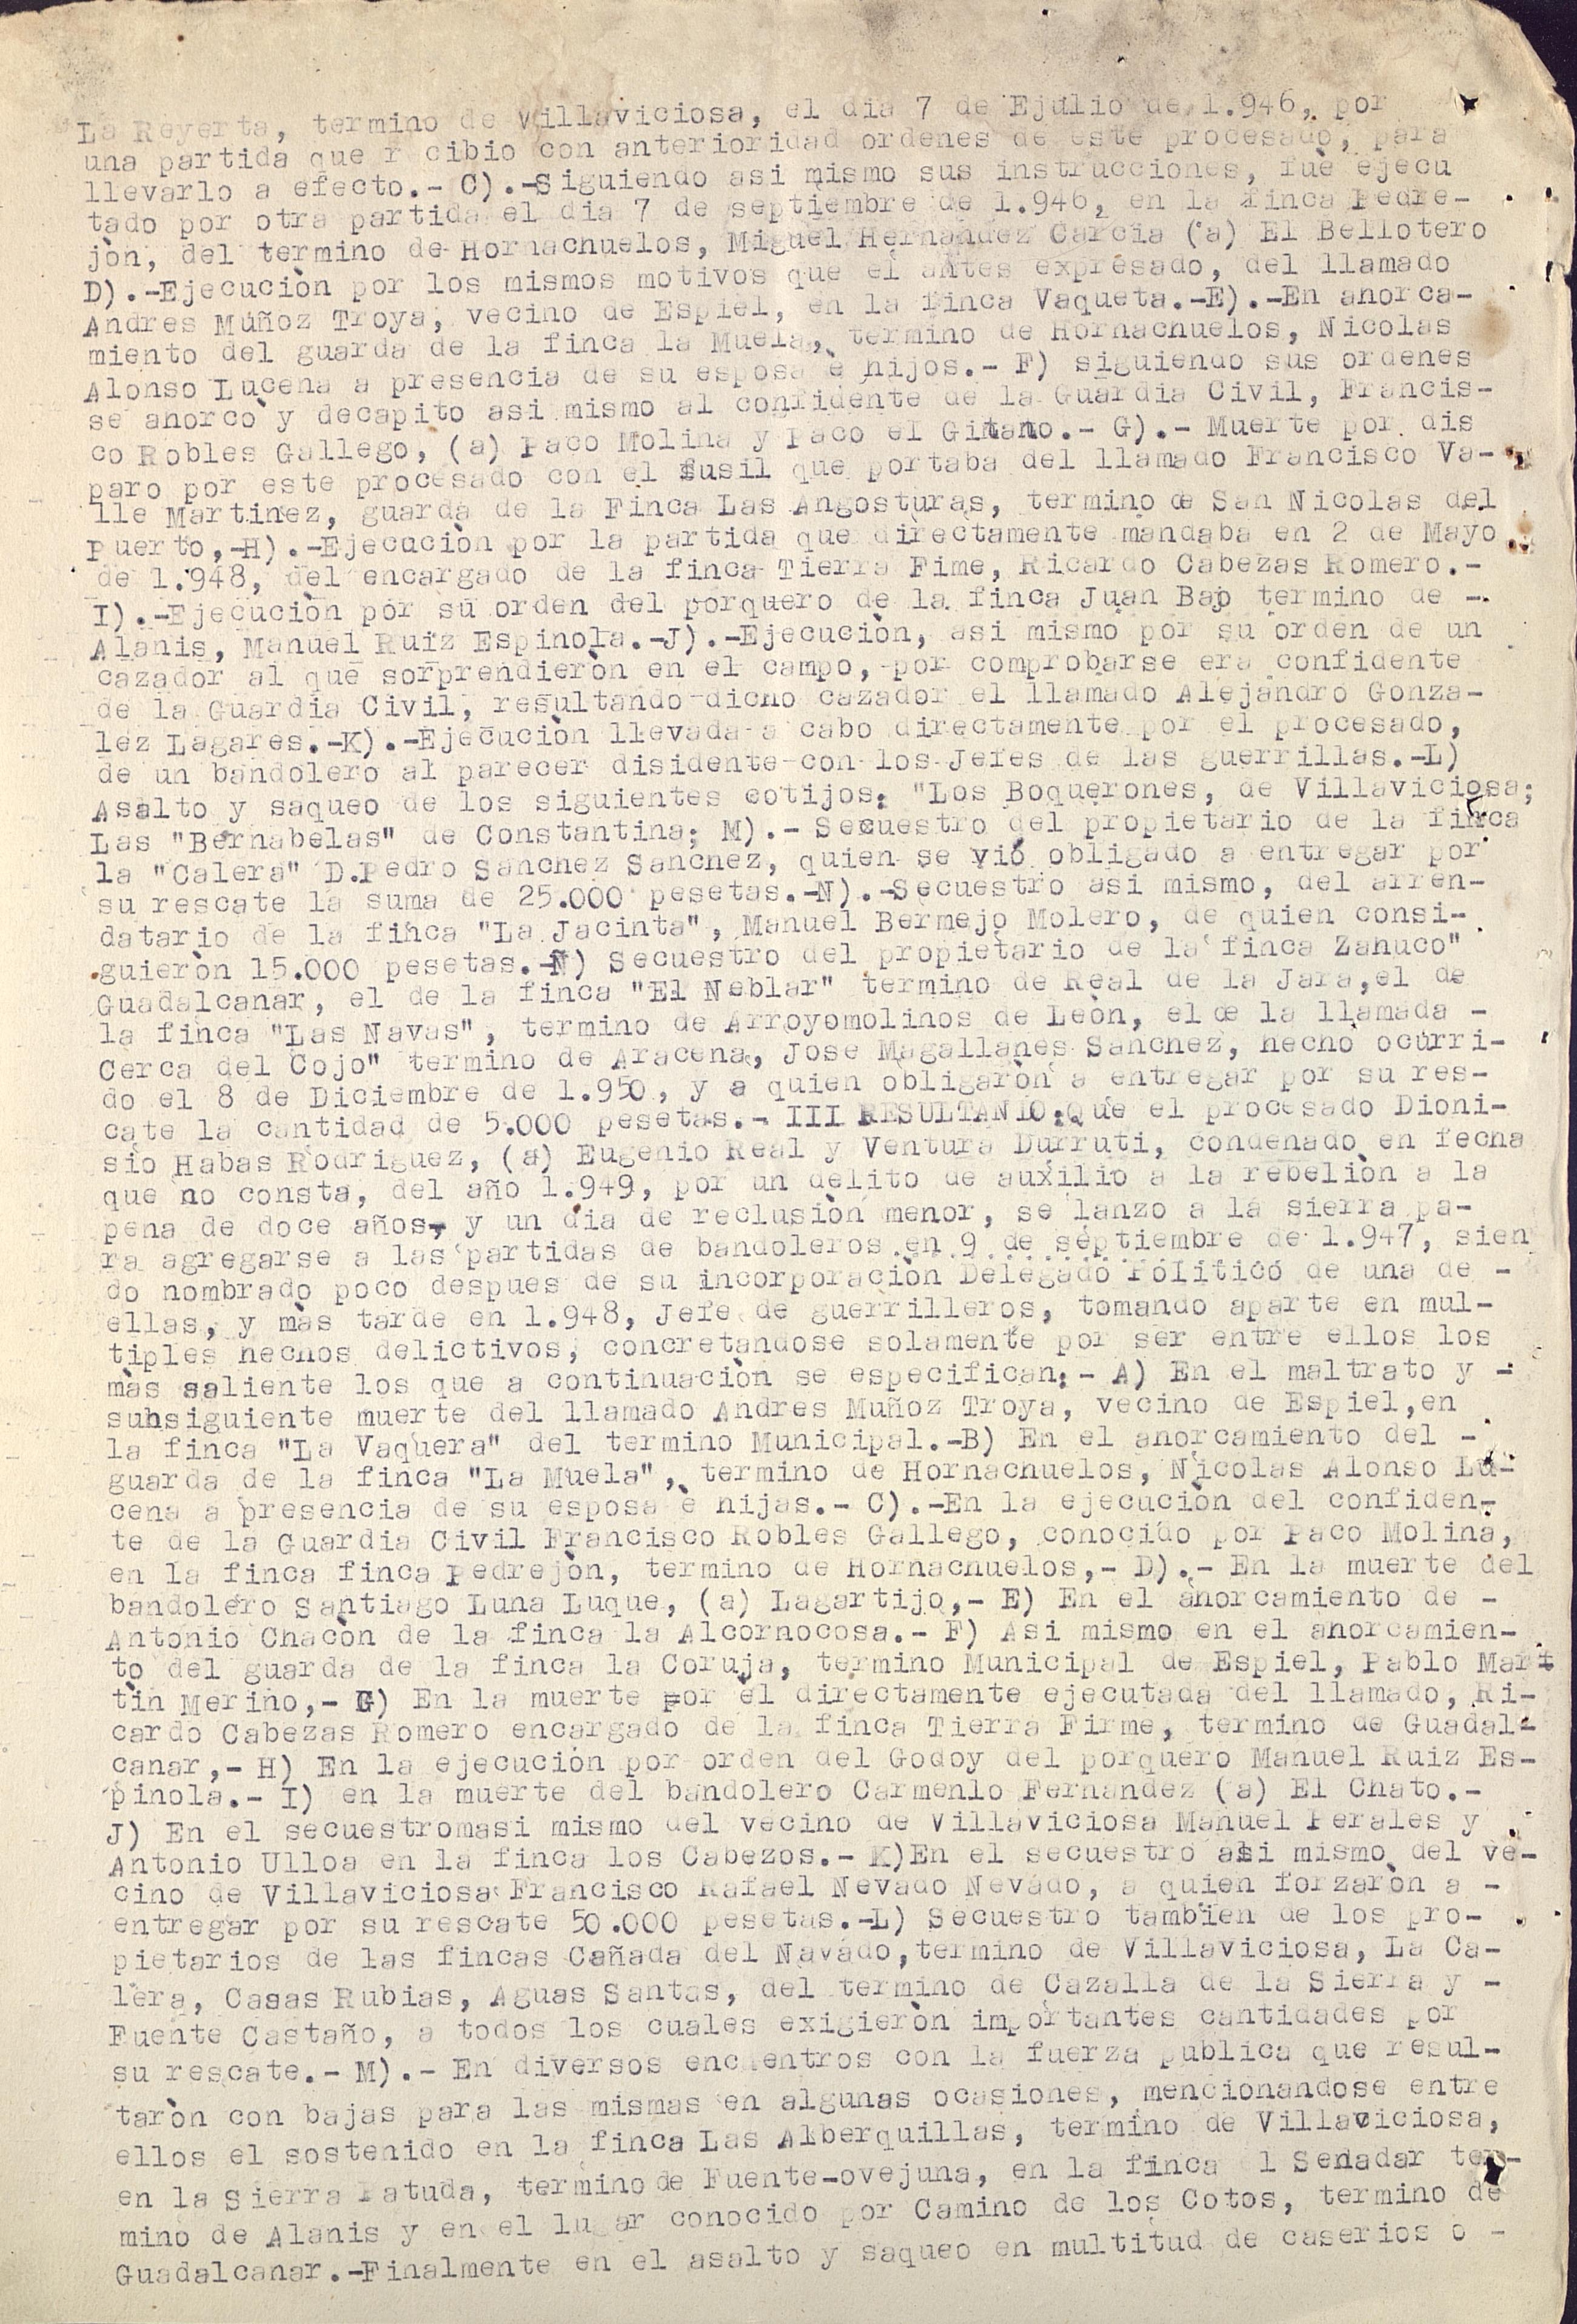 La Reyerta, termino de Villaviciosa, el dia 7 de Ejulio de 1.946, por
una partida que r cibio con anterioridad ordenes de este procesado, para
llevarlo a efecto.- C).-Siguiendo asi mismo sus instrucciones, fuè ejecu
tado por otra partida el dia 7 de septiembre de 1.946, en la finca Pedre-
jòn, del tèrmino de Hornachuelos, Miguel Hernandez Garcia (a) El Bellotero
D).-Ejecuciòn por los mismos motivos que el antes expresado, del llamado
Andres Múñoz Troya, vecino de Espiel, en la finca Vaqueta.-E).-En ahorca-
miento del guarda de la finca la Muela, termino de Hornachuelos, Nicolas
Alonso Lucena a presencia de su esposa è hijos.- F) siguiendo sus ordenes
se ahorcò y decapito asi mismo al confidente de la Guardia Civil, Francis-
co Robles Gallego, (a) Paco Molina y Paco el Gitano.- G).- Muerte por dis
paro por este procesado con el fusil que portaba del llamado Francisco Va-
lle Martinez, guarda de la Finca Las Angosturas, termino de San Nicolas del
Puerto,-H).-Ejecuciòn por la partida que directamente mandaba en 2 de Mayo
de 1.948, del encargado de la finca Tierra Fime, Ricardo Cabezas Romero.-
I).-Ejecuciòn por su orden del porquero de la finca Juan Bajo termino de -
Alanis, Manuel Ruiz Espinola.-J).-Ejecuciòn, asi mismo por su orden de un
cazador al que sorprendieròn en el campo, por comprobarse era confidente
de la Guardia Civil, resultando dicho cazador el llamado Alejandro Gonza-
lez Lagares.-K).-Ejecuciòn llevada a cabo directamente por el procesado,
de un bandolero al parecer disidente con los Jefes de las guerrillas.-L)
Asalto y saqueo de los siguientes cotijos: "Los Boquerones, de Villaviciosa;
Las "Bernabelas" de Constantina; M).- Secuestro del propietario de la finca
la "Calera" D.Pedro Sanchez Sanchez, quien se viò obligado a entregar por
su rescate la suma de 25.000 pesetas.-N).-Secuestro asi mismo, del arren-
datario de la finca "La Jacinta", Manuel Bermejo Molero, de quien consi-
guieròn 15.000 pesetas.-Ñ) Secuestro del propietario de la finca Zahuco"
Guadalcanar, el de la finca "El Neblar" termino de Real de la Jara,el de
la finca "Las Navas", termino de Arroyomolinos de Leòn, el de la llamada -
Cerca del Cojo" termino de Aracena, Jose Magallanes Sanchez, hecho ocurri-
do el 8 de Diciembre de 1.950, y a quien obligaròn a entregar por su res-
cate la cantidad de 5.000 pesetas.- III RESULTANDO:Que el procesado Dioni-
sio Habas Rodriguez, (a) Eugenio Real y Ventura Durruti, condenado en fecha
que no consta, del año 1.949, por un delito de auxilio a la rebeliòn a la
pena de doce años, y un dia de reclusiòn menor, se lanzo a la sierra pa-
ra agregarse a las partidas de bandoleros en 9 de septiembre de 1.947, sien
do nombrado poco despues de su incorporaciòn Delegado Politico de una de -
ellas, y màs tarde en 1.948, Jefe de guerrilleros, tomando aparte en mul-
tiples hechos delictivos, concretandose solamente por ser entre ellos los
màs saliente los que a continuaciòn se especifican:- A) En el maltrato y -
suhsiguiente muerte del llamado Andres Muñoz Troya, vecino de Espiel,en
la finca "La Vaquera" del termino Municipal.-B) En el ahorcamiento del -
guarda de la finca "La Muela", termino de Hornachuelos, Nicolas Alonso Lu-
cena a presencia de su esposa è hijas.- C).-En la ejecuciòn del confiden-
te de la Guardia Civil Francisco Robles Gallego, conocido por Paco Molina,
en la finca finca Pedrejòn, termino de Hornachuelos,- D).- En la muerte del
bandolero Santiago Luna Luque, (a) Lagartijo,- E) En el ahorcamiento de -
Antonio Chacòn de la finca la Alcornocosa.- F) Asi mismo en el ahorcamien-
to del guarda de la finca la Coruja, termino Municipal de Espiel, Pablo Mart
tin Merino,- G) En la muerte por èl directamente ejecutada del llamado, Ri-
cardo Cabezas Romero encargado de la finca Tierra Firme, termino de Guadal-
canar,- H) En la ejecuciòn por orden del Godoy del porquero Manuel Ruiz Es-
pinola.- I) en la muerte del bandolero Carmenlo Fernandez (a) El Chato.-
J) En el secuestromasi mismo del vecino de Villaviciosa Manuel Perales y
Antonio Ulloa en la finca los Cabezos.- K)En el secuestro asi mismo del ve-
cino de Villaviciosa Francisco Rafael Nevado Nevado, a quien forzaròn a -
entregar por su rescate 50.000 pesetas.-L) Secuestro tambien de los pro-
pietarios de las fincas Cañada del Navado,termino de Villaviciosa, La Ca-
lera, Casas Rubias, Aguas Santas, del termino de Cazalla de la Sierra y -
Fuente Castaño, a todos los cuales exigieròn importantes cantidades por
su rescate.- M).- En diversos encuentros con la fuerza publica que resul-
taròn con bajas para las mismas en algunas ocasiones, mencionandose entre
ellos el sostenido en la finca Las Alberquillas, termino de Villaviciosa,
en la Sierra Patuda, termino de Fuente-ovejuna, en la finca l Senadar ter-
mino de Alanis y en el lugar conocido por Camino de los Cotos, termino de
Guadalcanar.-Finalmente en el asalto y saqueo en multitud de caserios o -